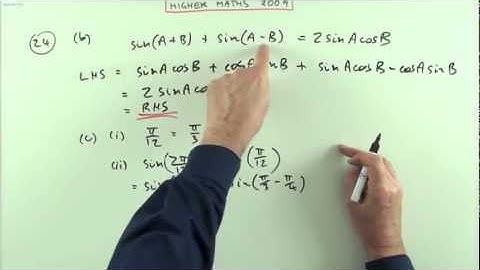 HIGHER MATHS 2009
24 (b) sin(A+B) + sin(A-B) = 2sinAcosB
LHS = sinAcosB + cosA sinB + sinAcosB - cosAsinB
= 2 sinAcos
= RHS
(c) (i) π/12 = π/3
(ii) sin(2π/ (π/12)
= sin in(π/3 - π/4)